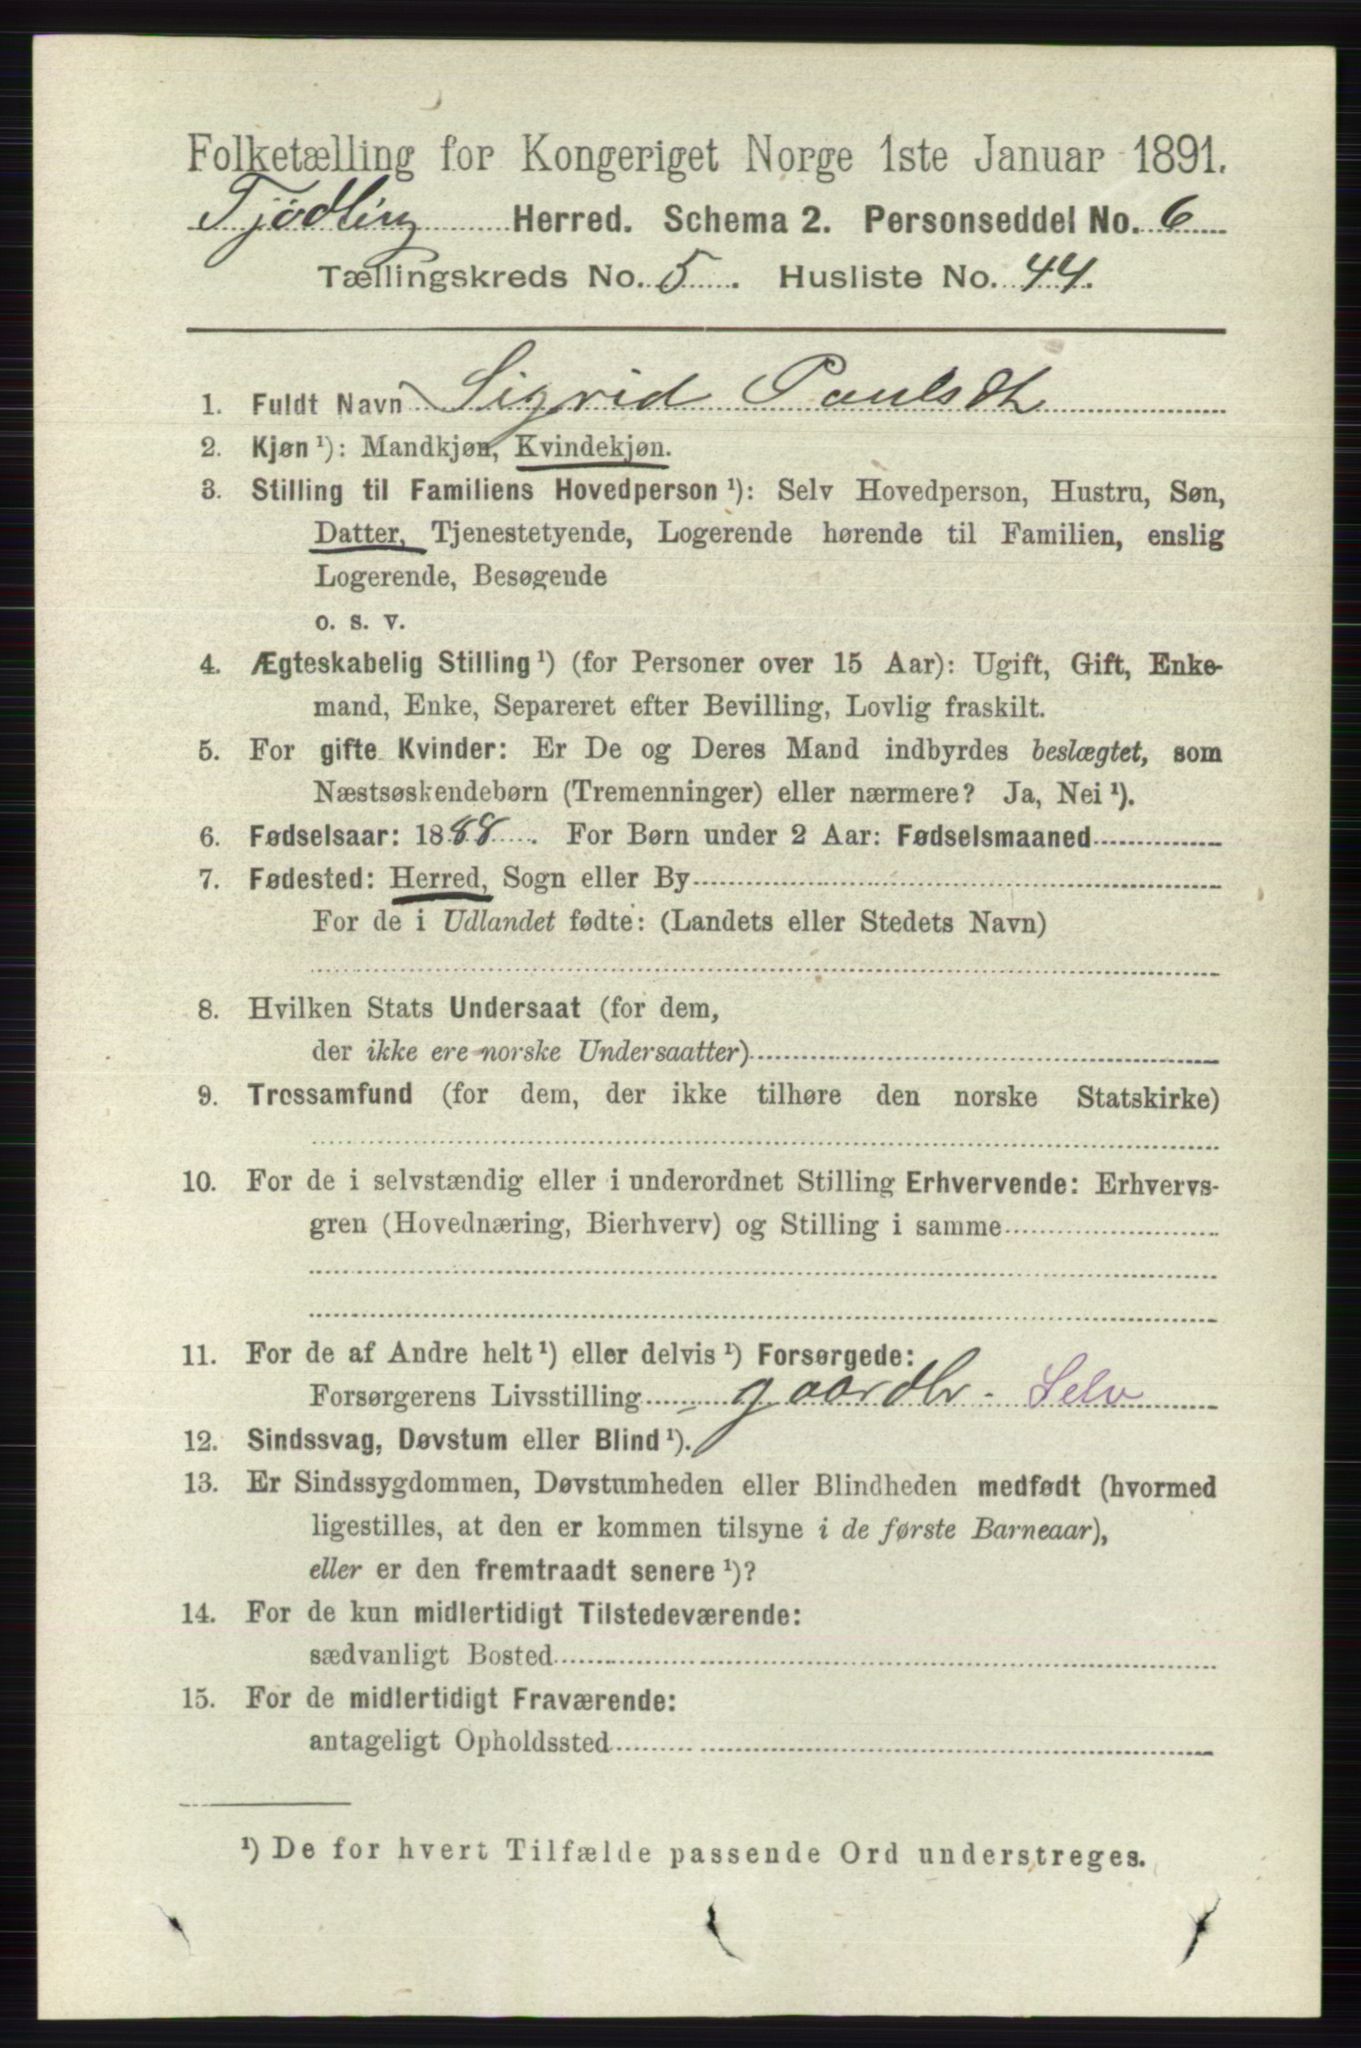 Folketælling for Kongeriget Norge 1ste Januar 1891.
Tjødling Herred. Schema 2. Personseddel No. 6
Tællingskreds No. 5. Husliste No. 44.
1. Fuldt Navn Sigrid Paulsdt
2. Kjøn ¹): Mandkjøn, Kvindekjøn.
3. Stilling til Familiens Hovedperson ¹): Selv Hovedperson, Hustru, Søn,
Datter, Tjenestetyende, Logerende hørende til Familien, enslig
Logerende, Besøgende
o. s. v.
4. Ægteskabelig Stilling ¹) (for Personer over 15 Aar): Ugift, Gift, Enke-
mand, Enke, Separeret efter Bevilling, Lovlig fraskilt.
5. For gifte Kvinder: Er De og Deres Mand indbyrdes beslægtet, som
Næstsøskendebørn (Tremenninger) eller nærmere? Ja, Nei ¹).
6. Fødselsaar: 1888. For Børn under 2 Aar: Fødselsmaaned
7. Fødested: Herred, Sogn eller By
For de i Udlandet fødte: (Landets eller Stedets Navn)
8. Hvilken Stats Undersaat (for dem,
der ikke ere norske Undersaatter)
9. Trossamfund (for dem, der ikke tilhøre den norske Statskirke)
10. For de i selvstændig eller i underordnet Stilling Erhvervende: Erhvervs-
gren (Hovednæring, Bierhverv) og Stilling i samme
11. For de af Andre helt ¹) eller delvis ¹) Forsørgede:
Forsørgerens Livsstilling gaardbr. Selv
12. Sindssvag, Døvstum eller Blind ¹).
13. Er Sindssygdommen, Døvstumheden eller Blindheden medfødt (hvormed
ligestilles, at den er kommen tilsyne i de første Barneaar),
eller er den fremtraadt senere ¹)?
14. For de kun midlertidigt Tilstedeværende:
sædvanligt Bosted
15. For de midlertidigt Fraværende:
antageligt Opholdssted
¹) De for hvert Tilfælde passende Ord understreges.